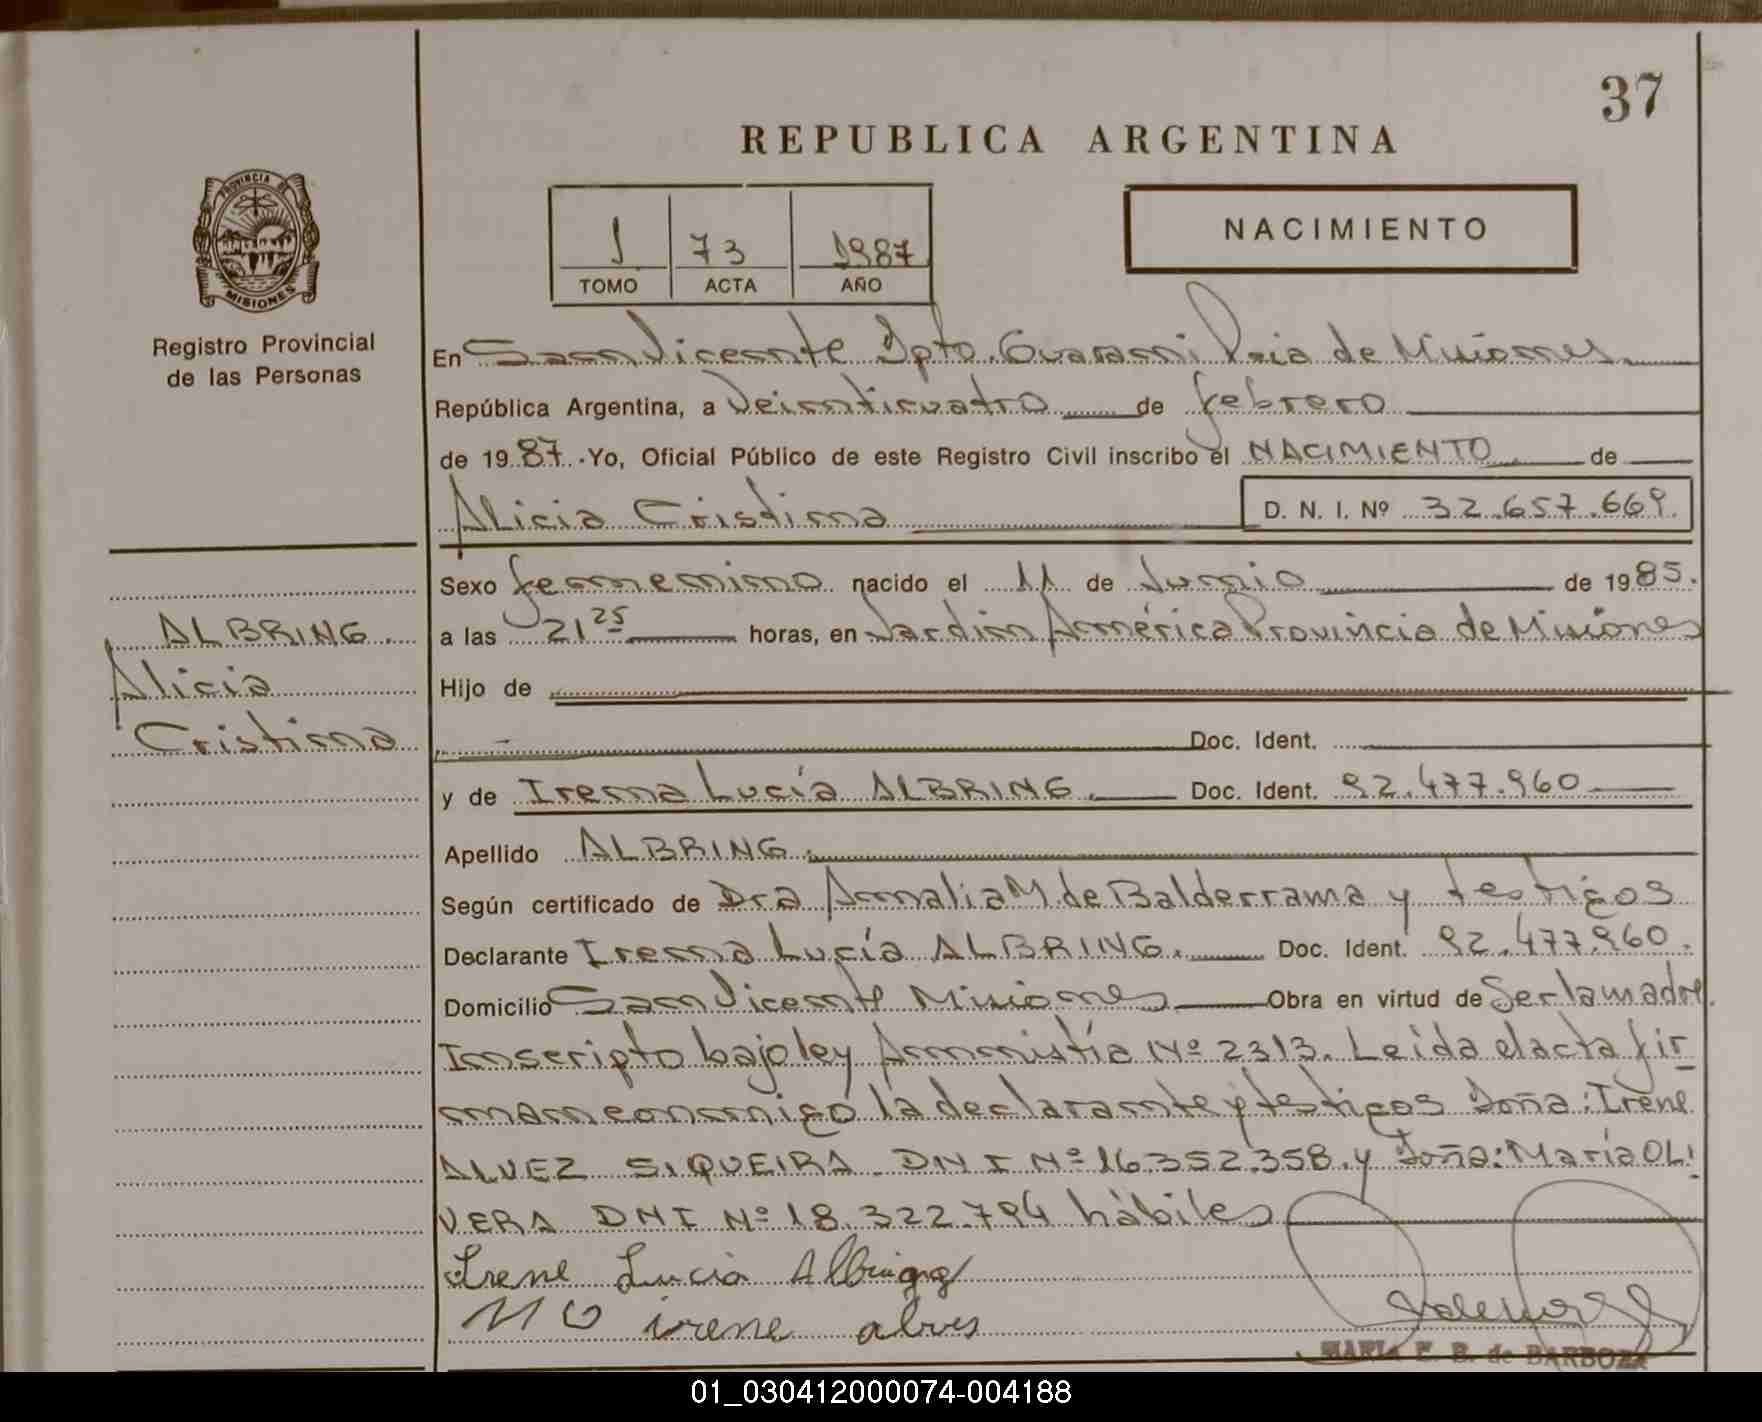 37
REPUBLICA ARGENTINA
PROVINCIA DE
MISIONES
Registro Provincial
de las Personas
1 73 1987
TOMO ACTA AÑO
NACIMIENTO
En San Vicente Dpto. Guarani Pcia de Misiones
República Argentina, a Veinticuatro de febrero
de 1987. Yo, Oficial Público de este Registro Civil inscribo el NACIMIENTO de
Alicia Cristina D. N. I. Nº 32.657.669.
Sexo femenino nacido el 11 de Junio de 1985.
a las 21 25 horas, en Jardín América Provincia de Misiones
Hijo de
Doc. Ident.
y de Irena Lucía ALBRING. Doc. Ident. 92.477.960
Apellido ALBRING.
Según certificado de Dra Amalia M. de Balderrama y testigos
Declarante Irena Lucía ALBRING. Doc. Ident. 92.477.960.
Domicilio San Vicente Misiones Obra en virtud de Ser la madre.
Inscripto bajo ley Amnistía Nº 2313. Leida el acta fir
man conmigo la declarante y testigos Doña: Irene
ALVEZ SIQUEIRA DNI Nº 16.352.358. y Doña: María OLI
VERA DNI Nº 18.322.794 hábiles
ALBRING
Alicia
Cristina
Irene Lucia Albring
M O irene alves
MARIA E. B. de BARBOZA
01_030412000074-004188